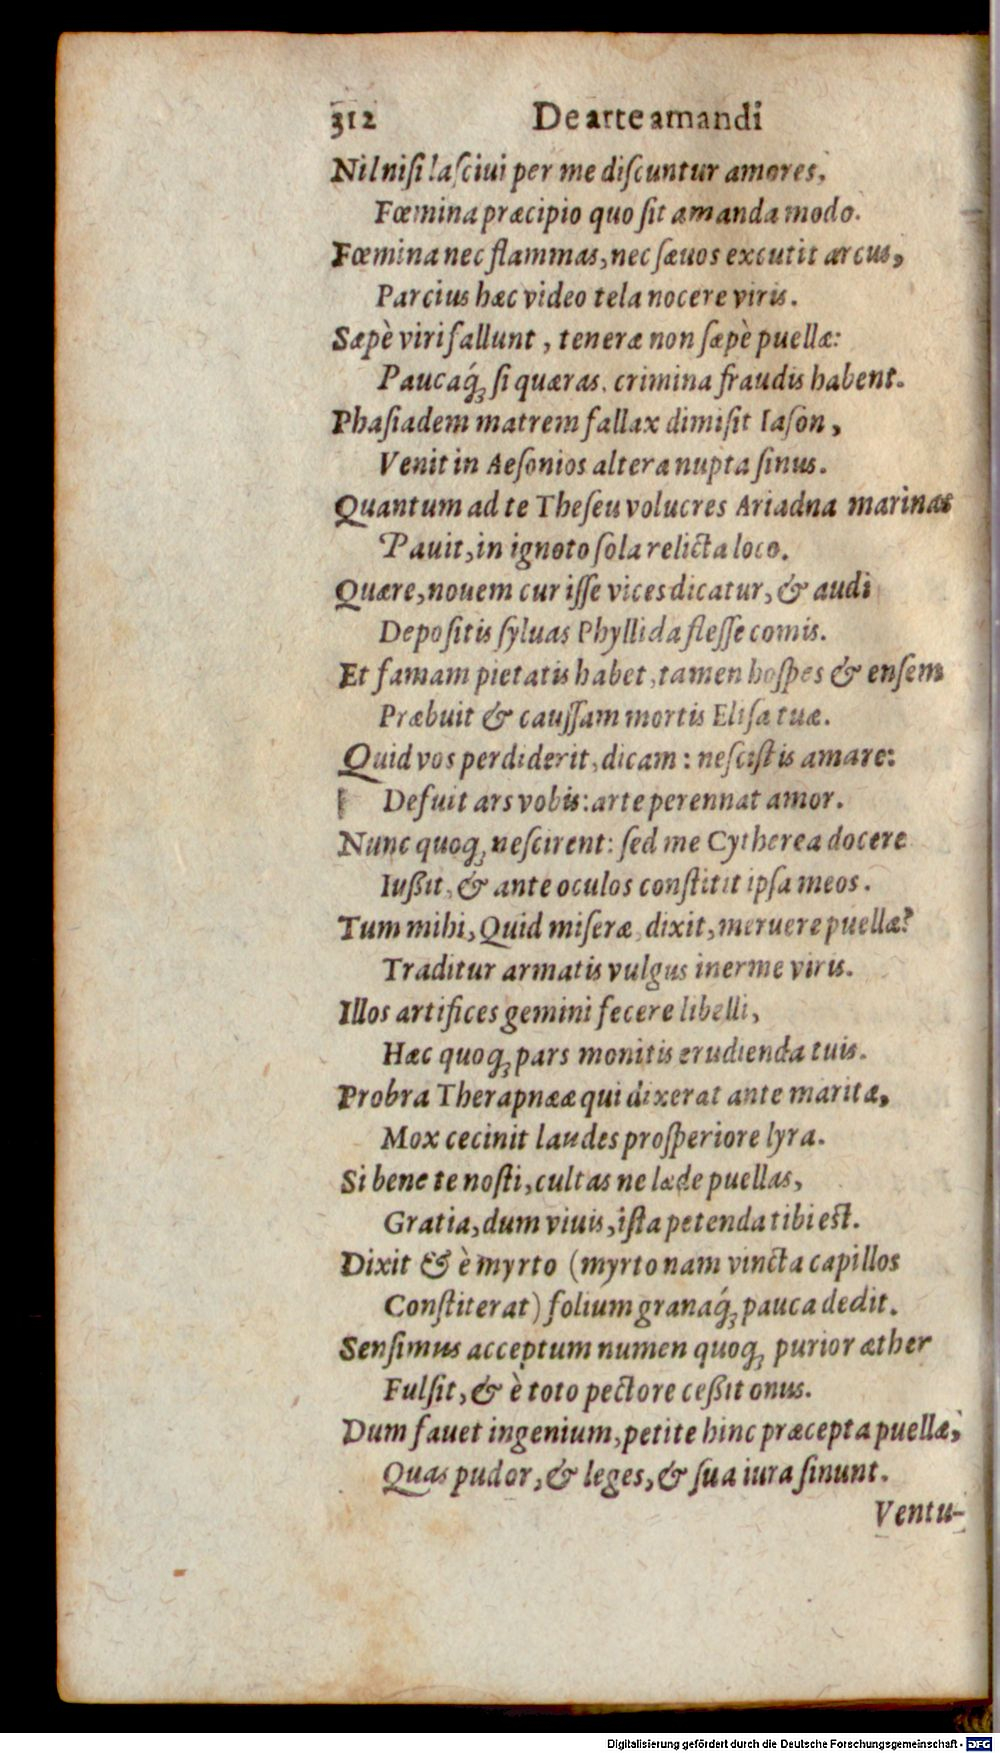 312 De arte amandi
Nil nisi lasciui per me discuntur amores,
Fœmina præcipio quo sit amanda modo.
Fœmina nec flammas, nec sæuos excutit arcus,
Parcius hæc video tela nocere viris.
Sæpè viri fallunt, teneræ non sæpè puellæ:
Paucaq́ꝫ si quæras, crimina fraudis habent.
Phasiadem matrem fallax dimisit Iason,
Venit in Aesonios altera nupta sinus.
Quantum ad te Theseu volucres Ariadna marinas
Pauit, in ignoto sola relicta loco.
Quære, nouem cur isse vices dicatur, & audi
Depositis syluas Phyllida flesse comis.
Et famam pietatis habet, tamen hospes & ensem
Præbuit & caussam mortis Elisa tuæ.
Quid vos perdiderit, dicam: nescistis amare:
Defuit ars vobis: arte perennat amor.
Nunc quoqꝫ nescirent: sed me Cytherea docere
Iußit, & ante oculos constitit ipsa meos.
Tum mihi, Quid miseræ, dixit, meruere puellæ?
Traditur armatis vulgus inerme viris.
Illos artifices gemini fecere libelli,
Hæc quoqꝫ pars monitis erudienda tuis.
Probra Therapnææ qui dixerat ante maritæ,
Mox cecinit laudes prosperiore lyra.
Si bene te nosti, cultas ne læde puellas,
Gratia, dum viuis, ista petenda tibi est.
Dixit & è myrto (myrto nam vincta capillos
Constiterat) folium granaq́ꝫ pauca dedit.
Sensimus acceptum numen quoqꝫ purior æther
Fulsit, & è toto pectore ceßit onus.
Dum fauet ingenium, petite hinc præcepta puellæ,
Quas pudor, & leges, & sua iura sinunt.
Ventu-
Digitalisierung gefördert durch die Deutsche Forschungsgemeinschaft - DFG